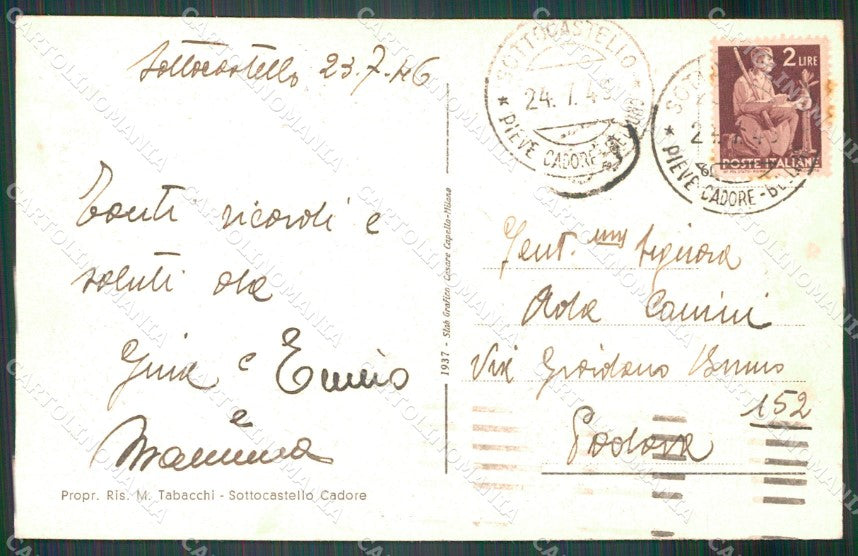 Sottocastello 23.7.46
SOTTOCASTELLO
24.7.46
* PIEVE CADORE - BELLUNO *
2 LIRE
POSTE ITALIANE
* PIEVE CADORE - BELLUNO
Tanti ricordi e
saluti da
Gina e Ennio
e
Mamma
Gent.ma Signora
Ada
Via Giordano Bruno
152
Padova
1937 - Stab. Grafico Cesare Capello - Milano
Propr. Ris. M. Tabacchi - Sottocastello Cadore
CARTOLINOMANIA